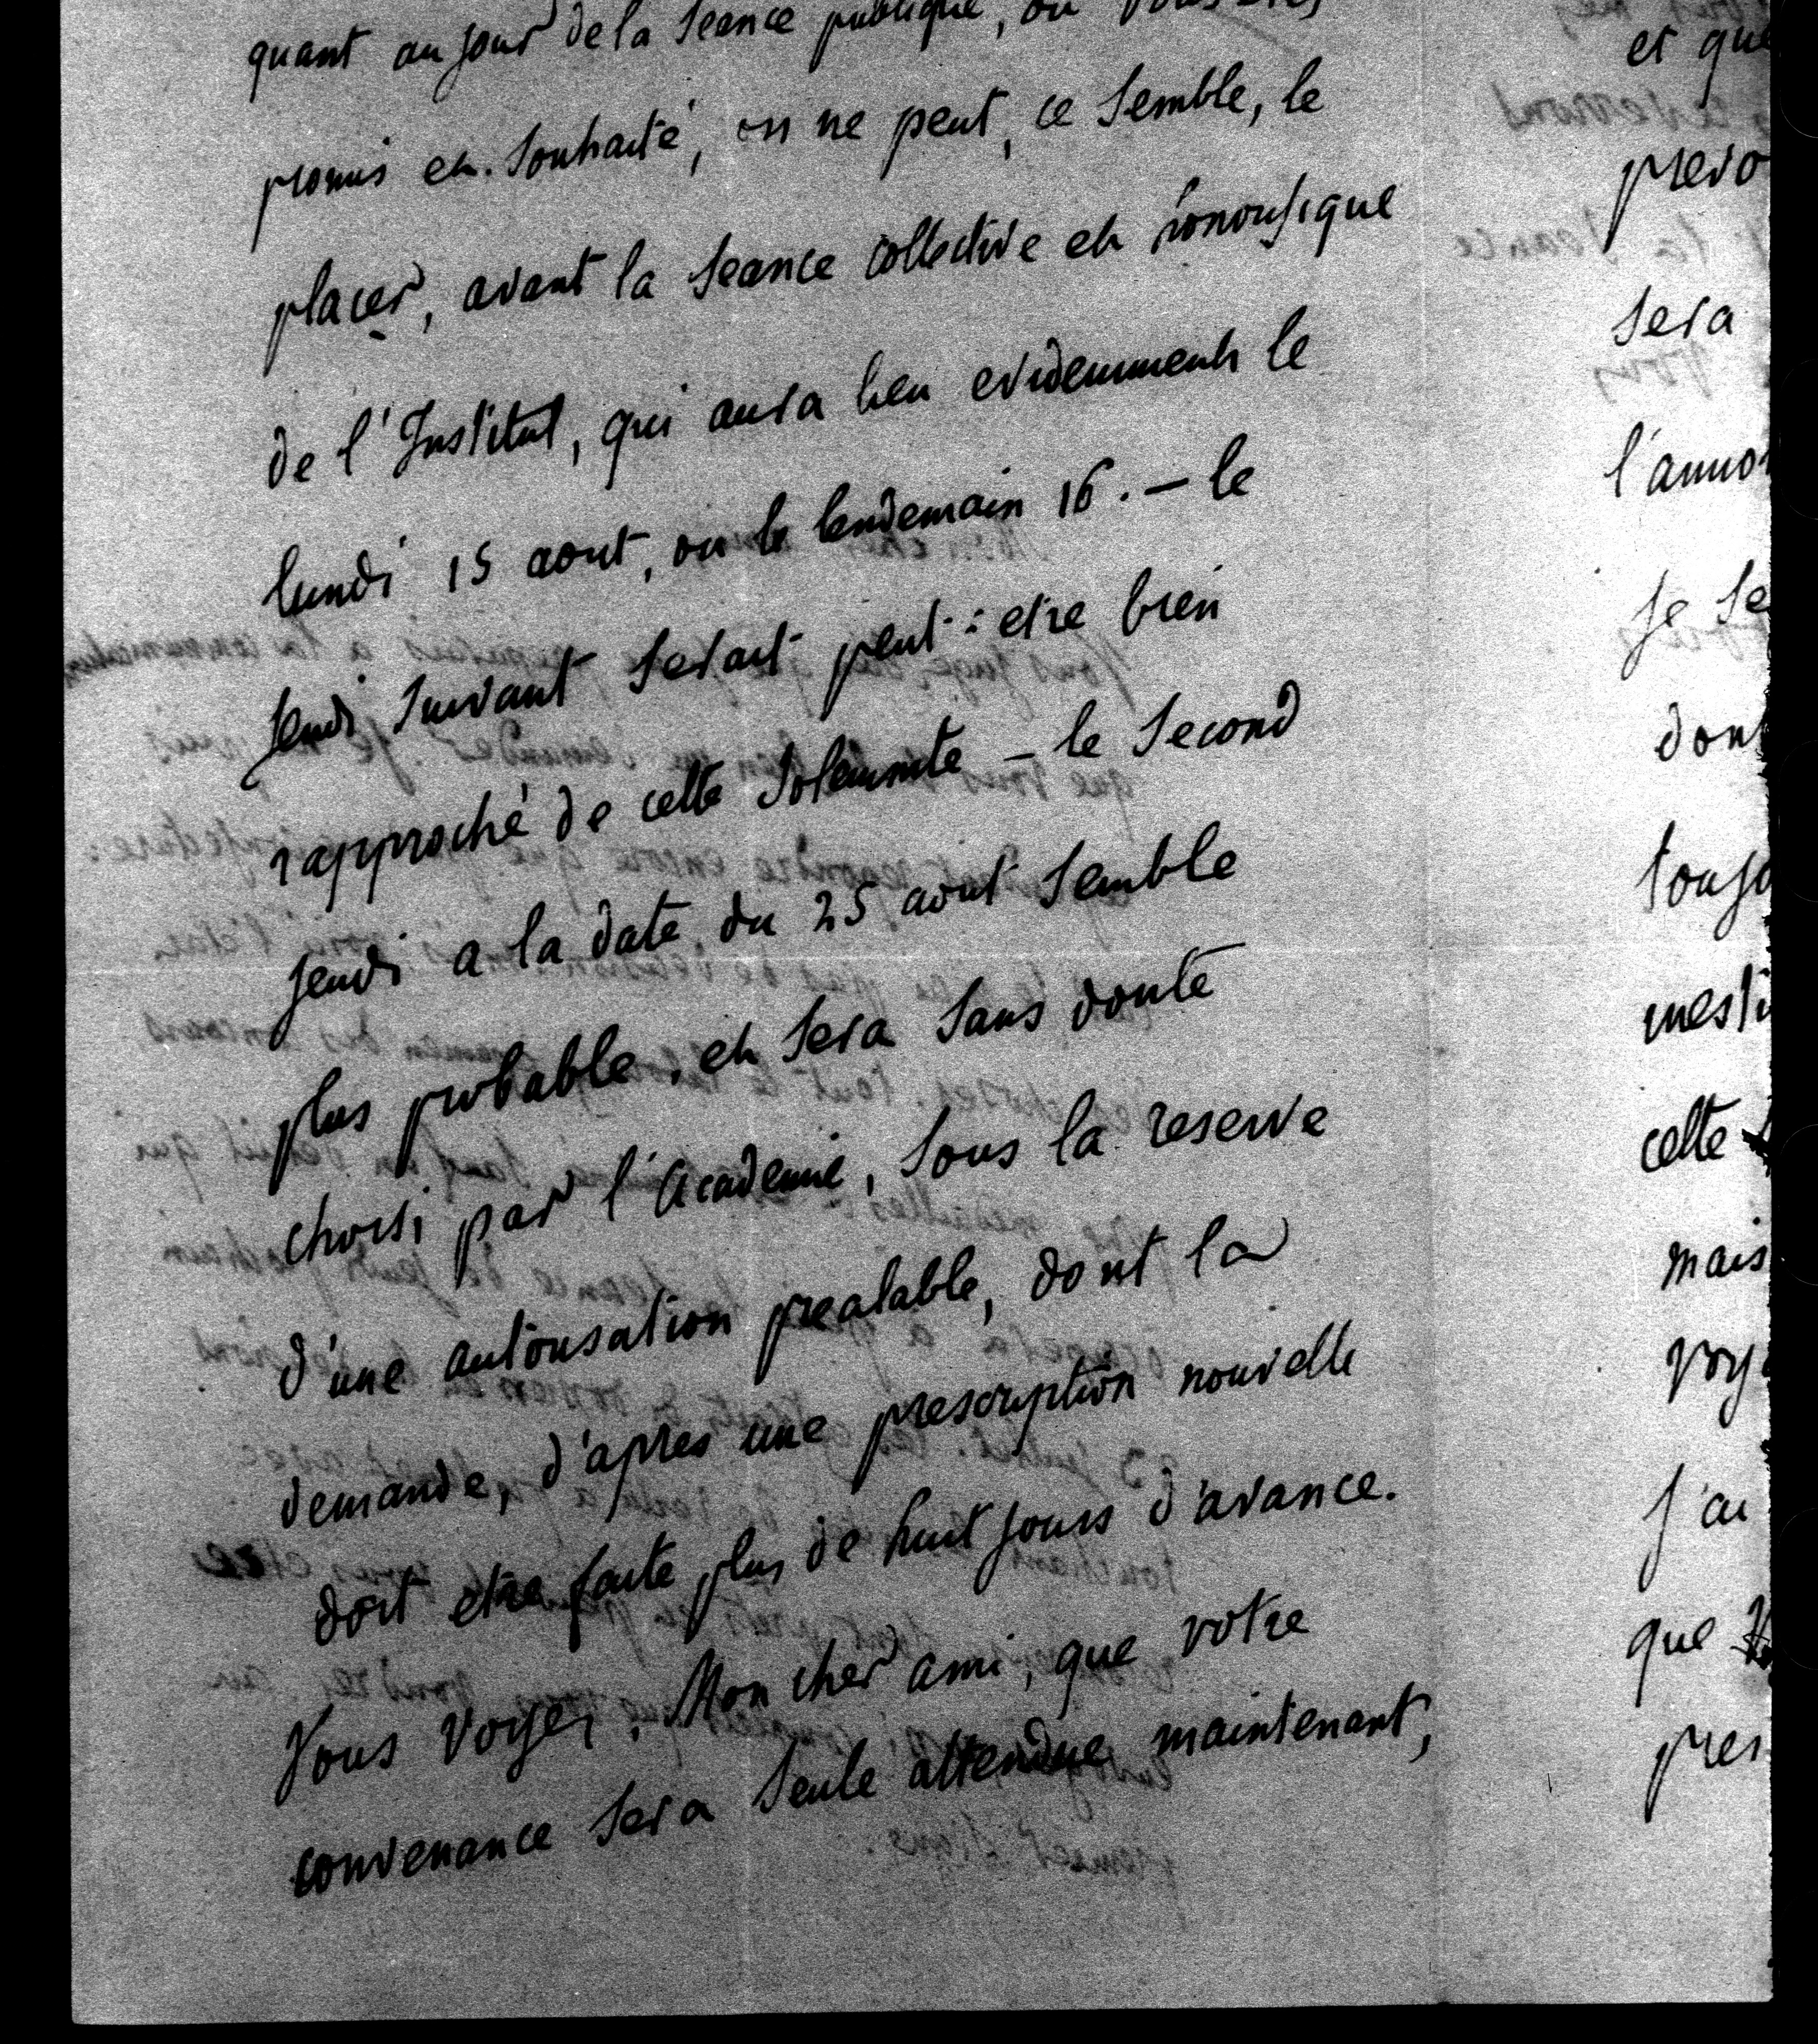 quant au jour de la Seance publique, ou vous etes
promis et souhaité, on ne peut, ce Semble, le
placer, avant la Seance collective et honorifique
de l'Institut, qui aura lieu evidemment le
lundi 15 aout, ou le lendemain 16. — le
jeudi Suivant Serait peut-etre bien
rapproché de cette Solemnité — le Second
jeudi a la date du 25 aout Semble
plus probable, et Sera Sans doute
choisi par l'academie, Sous la reserve
d'une autorisation prealable, dont la
demande, d'apres une prescription nouvelle
doit etre faite plus de huit jours d'avance.
Vous voyez, Mon cher ami, que votre
convenance Sera Seule attendue maintenant,
et que
Sera
je Se
dont
cette
mais
j'ai
que